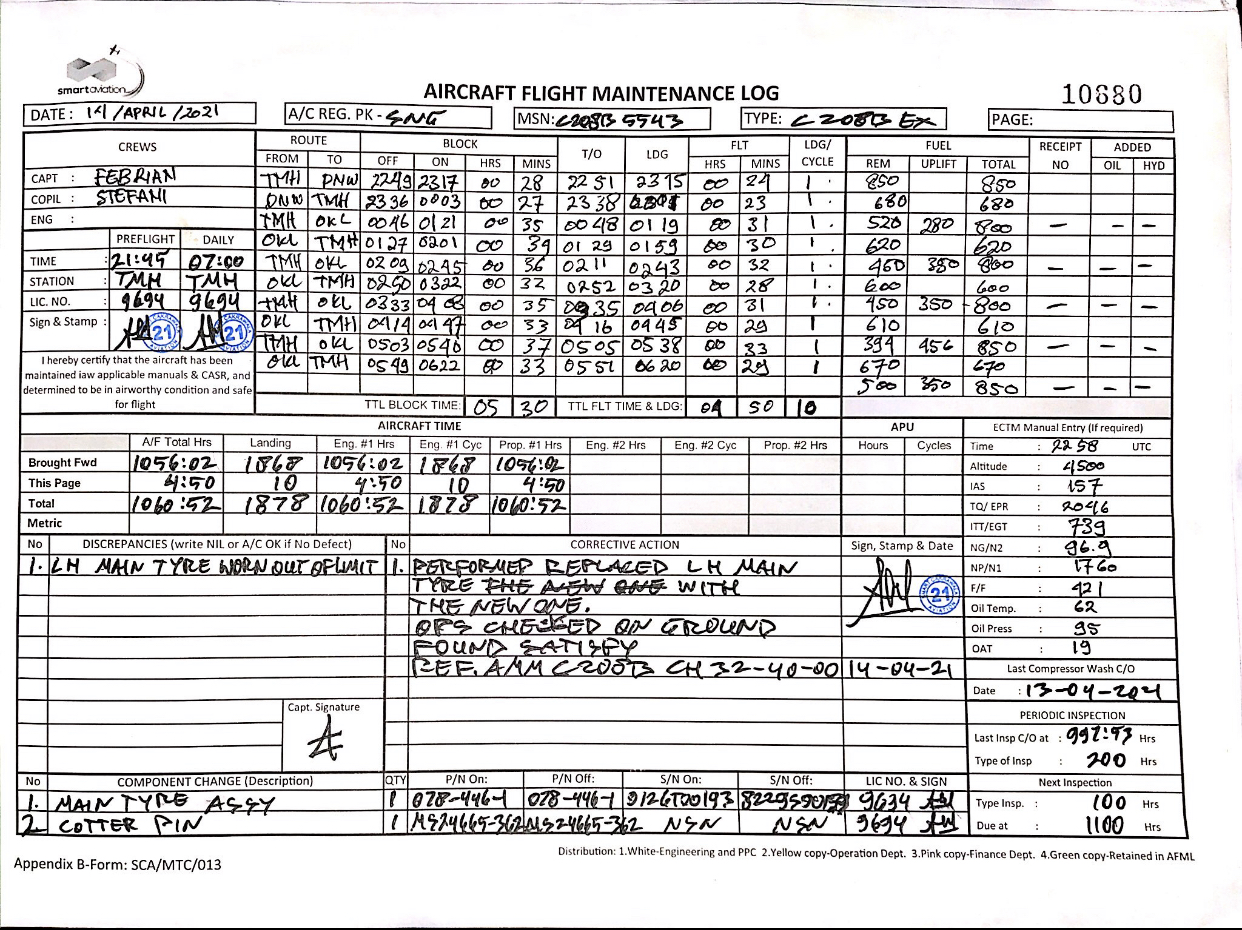 smartaviation
AIRCRAFT FLIGHT MAINTENANCE LOG
10880
DATE : 14 /APRIL /2021
A/C REG. PK - SNG
MSN: C208B 5543
TYPE: C 208B EX
PAGE:
CREWS ROUTE BLOCK T/O LDG FLT LDG/ CYCLE FUEL RECEIPT NO ADDED
FROM TO OFF ON HRS MINS HRS MINS REM UPLIFT TOTAL OIL HYD
CAPT : FEBRIAN TMH PNW 2249 2317 00 28 2251 2315 00 24 1 850 850
COPIL : STEFANI PNW TMH 2336 0003 00 27 2338 00 23 1 680 680
ENG : TMH OKL 0046 0121 00 35 0048 0119 00 31 1 520 280 800 — — —
PREFLIGHT DAILY OKL TMH 0127 0201 00 34 0129 0159 00 30 1 620 620
TIME : 21:45 07:00 TMH OKL 0209 0245 00 36 0211 0243 00 32 1 450 350 800 — — —
STATION : TMH TMH OKL TMH 0250 0322 00 32 0252 0320 00 28 1 600 600
LIC. NO. : 9694 9694 TMH OKL 0333 0408 00 35 0335 0406 00 31 1 450 350 800 — — —
Sign & Stamp : 21 21 OKL TMH 0414 0447 00 33 0416 0445 00 29 1 610 610
TMH OKL 0503 0540 00 37 0505 0538 00 33 1 394 456 850 — — —
OKL TMH 0549 0622 00 33 0551 0620 00 29 1 670 670
500 350 850 — — —
I hereby certify that the aircraft has been
maintained iaw applicable manuals & CASR, and
determined to be in airworthy condition and safe
for flight
TTL BLOCK TIME: 05 30 TTL FLT TIME & LDG: 04 50 10
AIRCRAFT TIME APU ECTM Manual Entry (If required)
A/F Total Hrs Landing Eng. #1 Hrs Eng. #1 Cyc Prop. #1 Hrs Eng. #2 Hrs Eng. #2 Cyc Prop. #2 Hrs Hours Cycles
Brought Fwd 1056:02 1868 1056:02 1868 1056:02
This Page 4:50 10 4:50 10 4:50
Total 1060:52 1878 1060:52 1878 1060:52
Metric
Time : 2258 UTC
Altitude : 4500
IAS : 157
TQ/ EPR : 2046
ITT/EGT : 739
NG/N2 : 96.9
NP/N1 : 1760
F/F : 421
Oil Temp. : 62
Oil Press : 95
OAT : 19
Last Compressor Wash C/O
Date : 13-04-2021
PERIODIC INSPECTION
Last Insp C/O at : 997:53 Hrs
Type of Insp : 200 Hrs
Next Inspection
Type Insp. : 100 Hrs
Due at : 1100 Hrs
No DISCREPANCIES (write NIL or A/C OK if No Defect) No CORRECTIVE ACTION Sign, Stamp & Date
1. LH MAIN TYRE WORN OUT OF LIMIT 1. PERFORMED REPLACED LH MAIN
TYRE THE NEW ONE WITH
THE NEW ONE.
OPS CHECKED ON GROUND
FOUND SATISFY
REF. AMM C208B CH 32-40-00 14-04-21
21
Capt. Signature
No COMPONENT CHANGE (Description) QTY P/N On: P/N Off: S/N On: S/N Off: LIC NO. & SIGN
1. MAIN TYRE ASSY 1 078-446-1 078-446-1 9126T00193 9694
2. COTTER PIN 1 MS24665-362 MS24665-362 NSN NSN 9694
Distribution: 1.White-Engineering and PPC 2.Yellow copy-Operation Dept. 3.Pink copy-Finance Dept. 4.Green copy-Retained in AFML
Appendix B-Form: SCA/MTC/013